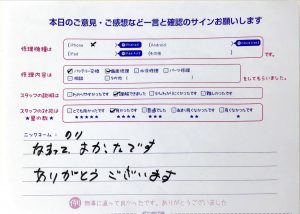 本日のご意見・ご感想など一言と確認のサインお願いします
修理機種は
iPhone
Android
iPad
その他
修理内容は
バッテリー交換 画面修理 水没修理 パーツ修理
相談 その他
をしてもらいました。
スタッフの説明は
わかりやすかった 理解できました 少しわかりにくかった 難しかった
スタッフの対応は
★星の数★
とても良かった 良かった 普通でした
★★★★★ ★★★★ ★★★ ★★ ★
ニックネーム：のり
なおって よかったです
ありがとう ございます
無事に直って良かったです。ありがとうございました